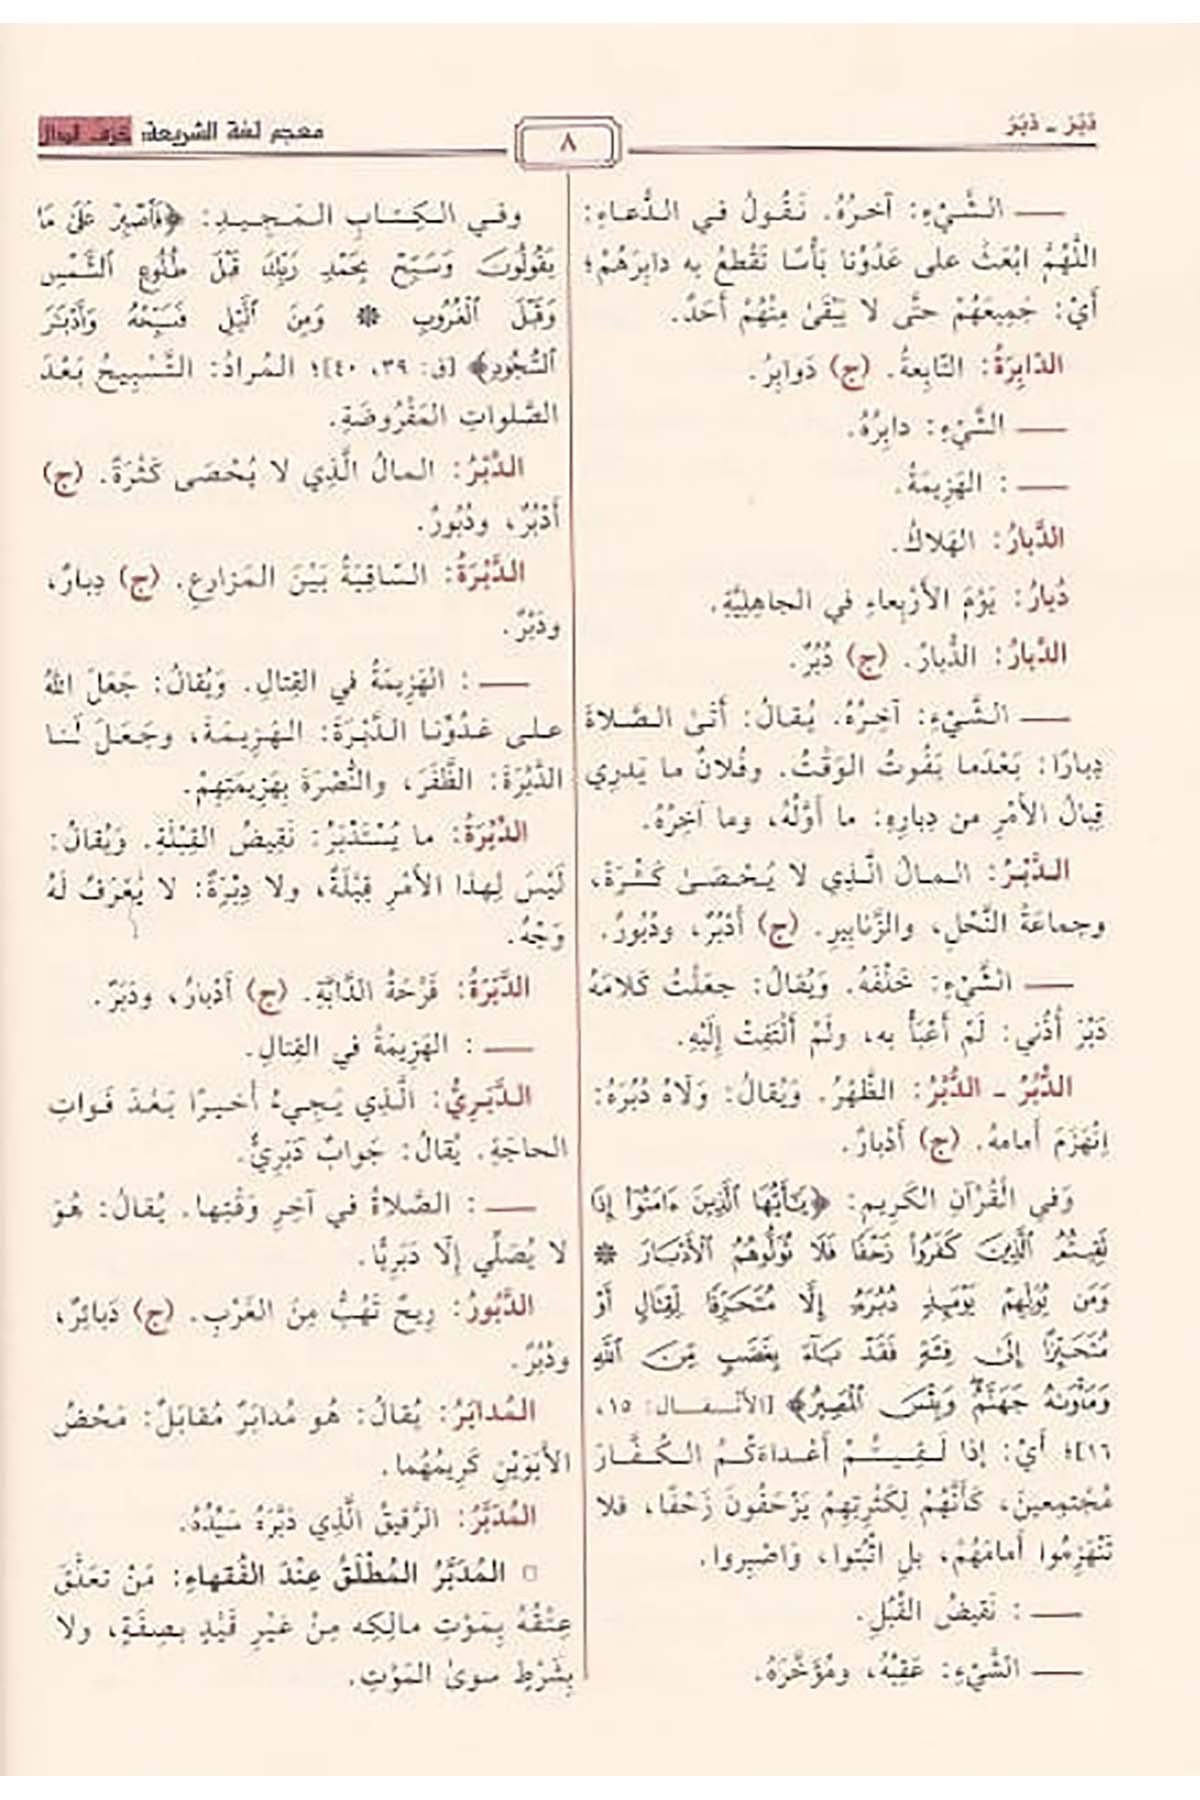 دَبَرَ - دَبَرَ
٨
معجم لغة الشريعة: حرف الدال
ـــــ الشَّيْءِ: آخرُهُ. نَقُولُ في الدُّعاءِ:
اللَّهُمَّ ابْعَثْ على عَدُوِّنا بَأْسًا تَقْطعُ به دابِرَهُمْ؛
أَيْ: جَمِيعَهُمْ حتَّى لا يَبْقَىٰ مِنْهُمْ أَحَدٌ.
الدّابِرَةُ: التّابِعةُ. (ج) دَوابِرُ.
ـــــ الشَّيْءِ: دابِرُهُ.
ـــــ : الهَزِيمَةُ.
الدَّبارُ: الهَلاكُ.
دُبارُ: يَوْمُ الأَرْبِعاءِ في الجاهِلِيَّةِ.
الدِّبارُ: الدُّبارُ. (ج) دُبُرٌ.
ـــــ الشَّيْءِ: آخِرُهُ. يُقالُ: أَتىٰ الصَّلاةَ
دِبارًا: بَعْدَما يَفُوتُ الوَقْتُ. وفُلانٌ ما يَدرِي
قِبالُ الأَمْرِ من دِبارِهِ: ما أَوَّلُهُ، وما آخِرُهُ.
الدَّبْرُ: المالُ الَّذِي لا يُحْصَىٰ كَثْرَةً،
وجماعَةُ النَّحْلِ، والزَّنابِيرِ. (ج) أَدْبُرٌ، ودُبُورٌ.
ـــــ الشَّيْءِ: خَلْفَهُ. وَيُقالُ: جعَلْتُ كَلامَهُ
دَبْرَ أُذُني: لَمْ أَعْبَأْ به، ولَمْ أَلْتَفِتْ إِلَيْهِ.
الدُّبُرُ - الدُّبْرُ: الظَّهْرُ. وَيُقالُ: وَلّاهُ دُبُرَهُ:
اِنْهَزَمَ أَمامهُ. (ج) أَدْبارٌ.
وَفي الْقُرْآنِ الكَرِيمِ: ﴿يَـٰٓأَيُّهَا ٱلَّذِينَ ءَامَنُوٓا۟ إِذَا
لَقِيتُمُ ٱلَّذِينَ كَفَرُوا۟ زَحْفًا فَلَا تُوَلُّوهُمُ ٱلْأَدْبَارَ ۞
وَمَن يُوَلِّهِمْ يَوْمَئِذٍ دُبُرَهُۥٓ إِلَّا مُتَحَرِّفًا لِّقِتَالٍ أَوْ
مُتَحَيِّزًا إِلَىٰ فِئَةٍ فَقَدْ بَآءَ بِغَضَبٍ مِّنَ ٱللَّهِ
وَمَأْوَىٰهُ جَهَنَّمُ وَبِئْسَ ٱلْمَصِيرُ﴾ [الأنفال: ١٥،
١٦]؛ أَيْ: إذا لَقِيتُمْ أَعْداءَكُمُ الكُفَّارَ
مُجْتمِعينَ، كَأَنَّهُمْ لِكَثْرتِهِمْ يَزْحَفُونَ زَحْفًا، فلا
تَنْهَزِمُوا أَمامَهُمْ، بلِ اثْبُتوا، وَاصْبِروا.
ـــــ : نَقيضُ القُبُلِ.
ـــــ الشَّيْءِ: عَقِبُهُ، ومُؤَخَّرُهُ.
وفي الكِتابِ المَجِيدِ: ﴿فَٱصْبِرْ عَلَىٰ مَا
يَقُولُونَ وَسَبِّحْ بِحَمْدِ رَبِّكَ قَبْلَ طُلُوعِ ٱلشَّمْسِ
وَقَبْلَ ٱلْغُرُوبِ ۞ وَمِنَ ٱلَّيْلِ فَسَبِّحْهُ وَأَدْبَـٰرَ
ٱلسُّجُودِ﴾ [ق: ٣٩، ٤٠]؛ المُرادُ: التَّسْبِيحُ بَعْدَ
الصَّلواتِ المَفْرُوضَةِ.
الدِّبْرُ: المالُ الَّذِي لا يُحْصَى كَثْرَةً. (ج)
أَدْبُرٌ، ودُبُورٌ.
الدَّبْرَةُ: السّاقِيَةُ بَيْنَ المَزارعِ. (ج) دِبارٌ،
ودَبْرٌ.
ـــــ : الْهَزِيمَةُ في القِتالِ. وَيُقالُ: جَعَلَ اللهُ
على عَدُوِّنا الدَّبْرَةَ: الهَزِيمَةَ، وجَعَلَ لَنا
الدَّبْرَةَ: الظَّفَرَ، والنُّصْرَةَ بِهَزِيمَتِهِمْ.
الدِّبْرَةُ: ما يُسْتَدْبَرُ: نَقِيضُ القِبْلَةِ. وَيُقالُ:
لَيْسَ لِهذا الأَمْرِ قِبْلَةٌ، ولا دِبْرَةٌ: لا يُعْرَفُ لَهُ
وَجْهُ.
الدَّبَرَةُ: قَرْحَةُ الدّابَّةِ. (ج) أَدْبارٌ، ودَبَرٌ.
ـــــ : الهَزِيمَةُ في القِتالِ.
الدَّبَرِيُّ: الَّذِي يَجِيءُ أَخيرًا بَعْدَ فَواتِ
الحاجَةِ. يُقالُ: جَوابٌ دَبَرِيٌّ.
ـــــ : الصَّلاةُ في آخِرِ وَقْتِها. يُقالُ: هُوَ
لا يُصَلِّي إِلّا دَبَرِيًّا.
الدَّبُورُ: رِيحٌ تَهُبُّ مِنَ الغَرْبِ. (ج) دَبائِرُ،
ودُبُرٌ.
المُدابَرُ: يُقالُ: هُو مُدابَرٌ مُقابَلٌ: مَحْضُ
الأَبَوَيْنِ كَرِيمُهُما.
المُدَبَّرُ: الرَّقيقُ الَّذي دَبَّرَهُ سَيِّدُهُ.
□ المُدَبَّرُ المُطْلَقُ عِنْدَ الفُقهاءِ: مَنْ تَعَلَّقَ
عِتْقُهُ بِمَوْتِ مالِكِه مِنْ غَيْرِ قَيْدٍ بِصِفَةٍ، ولا
بِشَرْطٍ سوىٰ المَوْتِ.